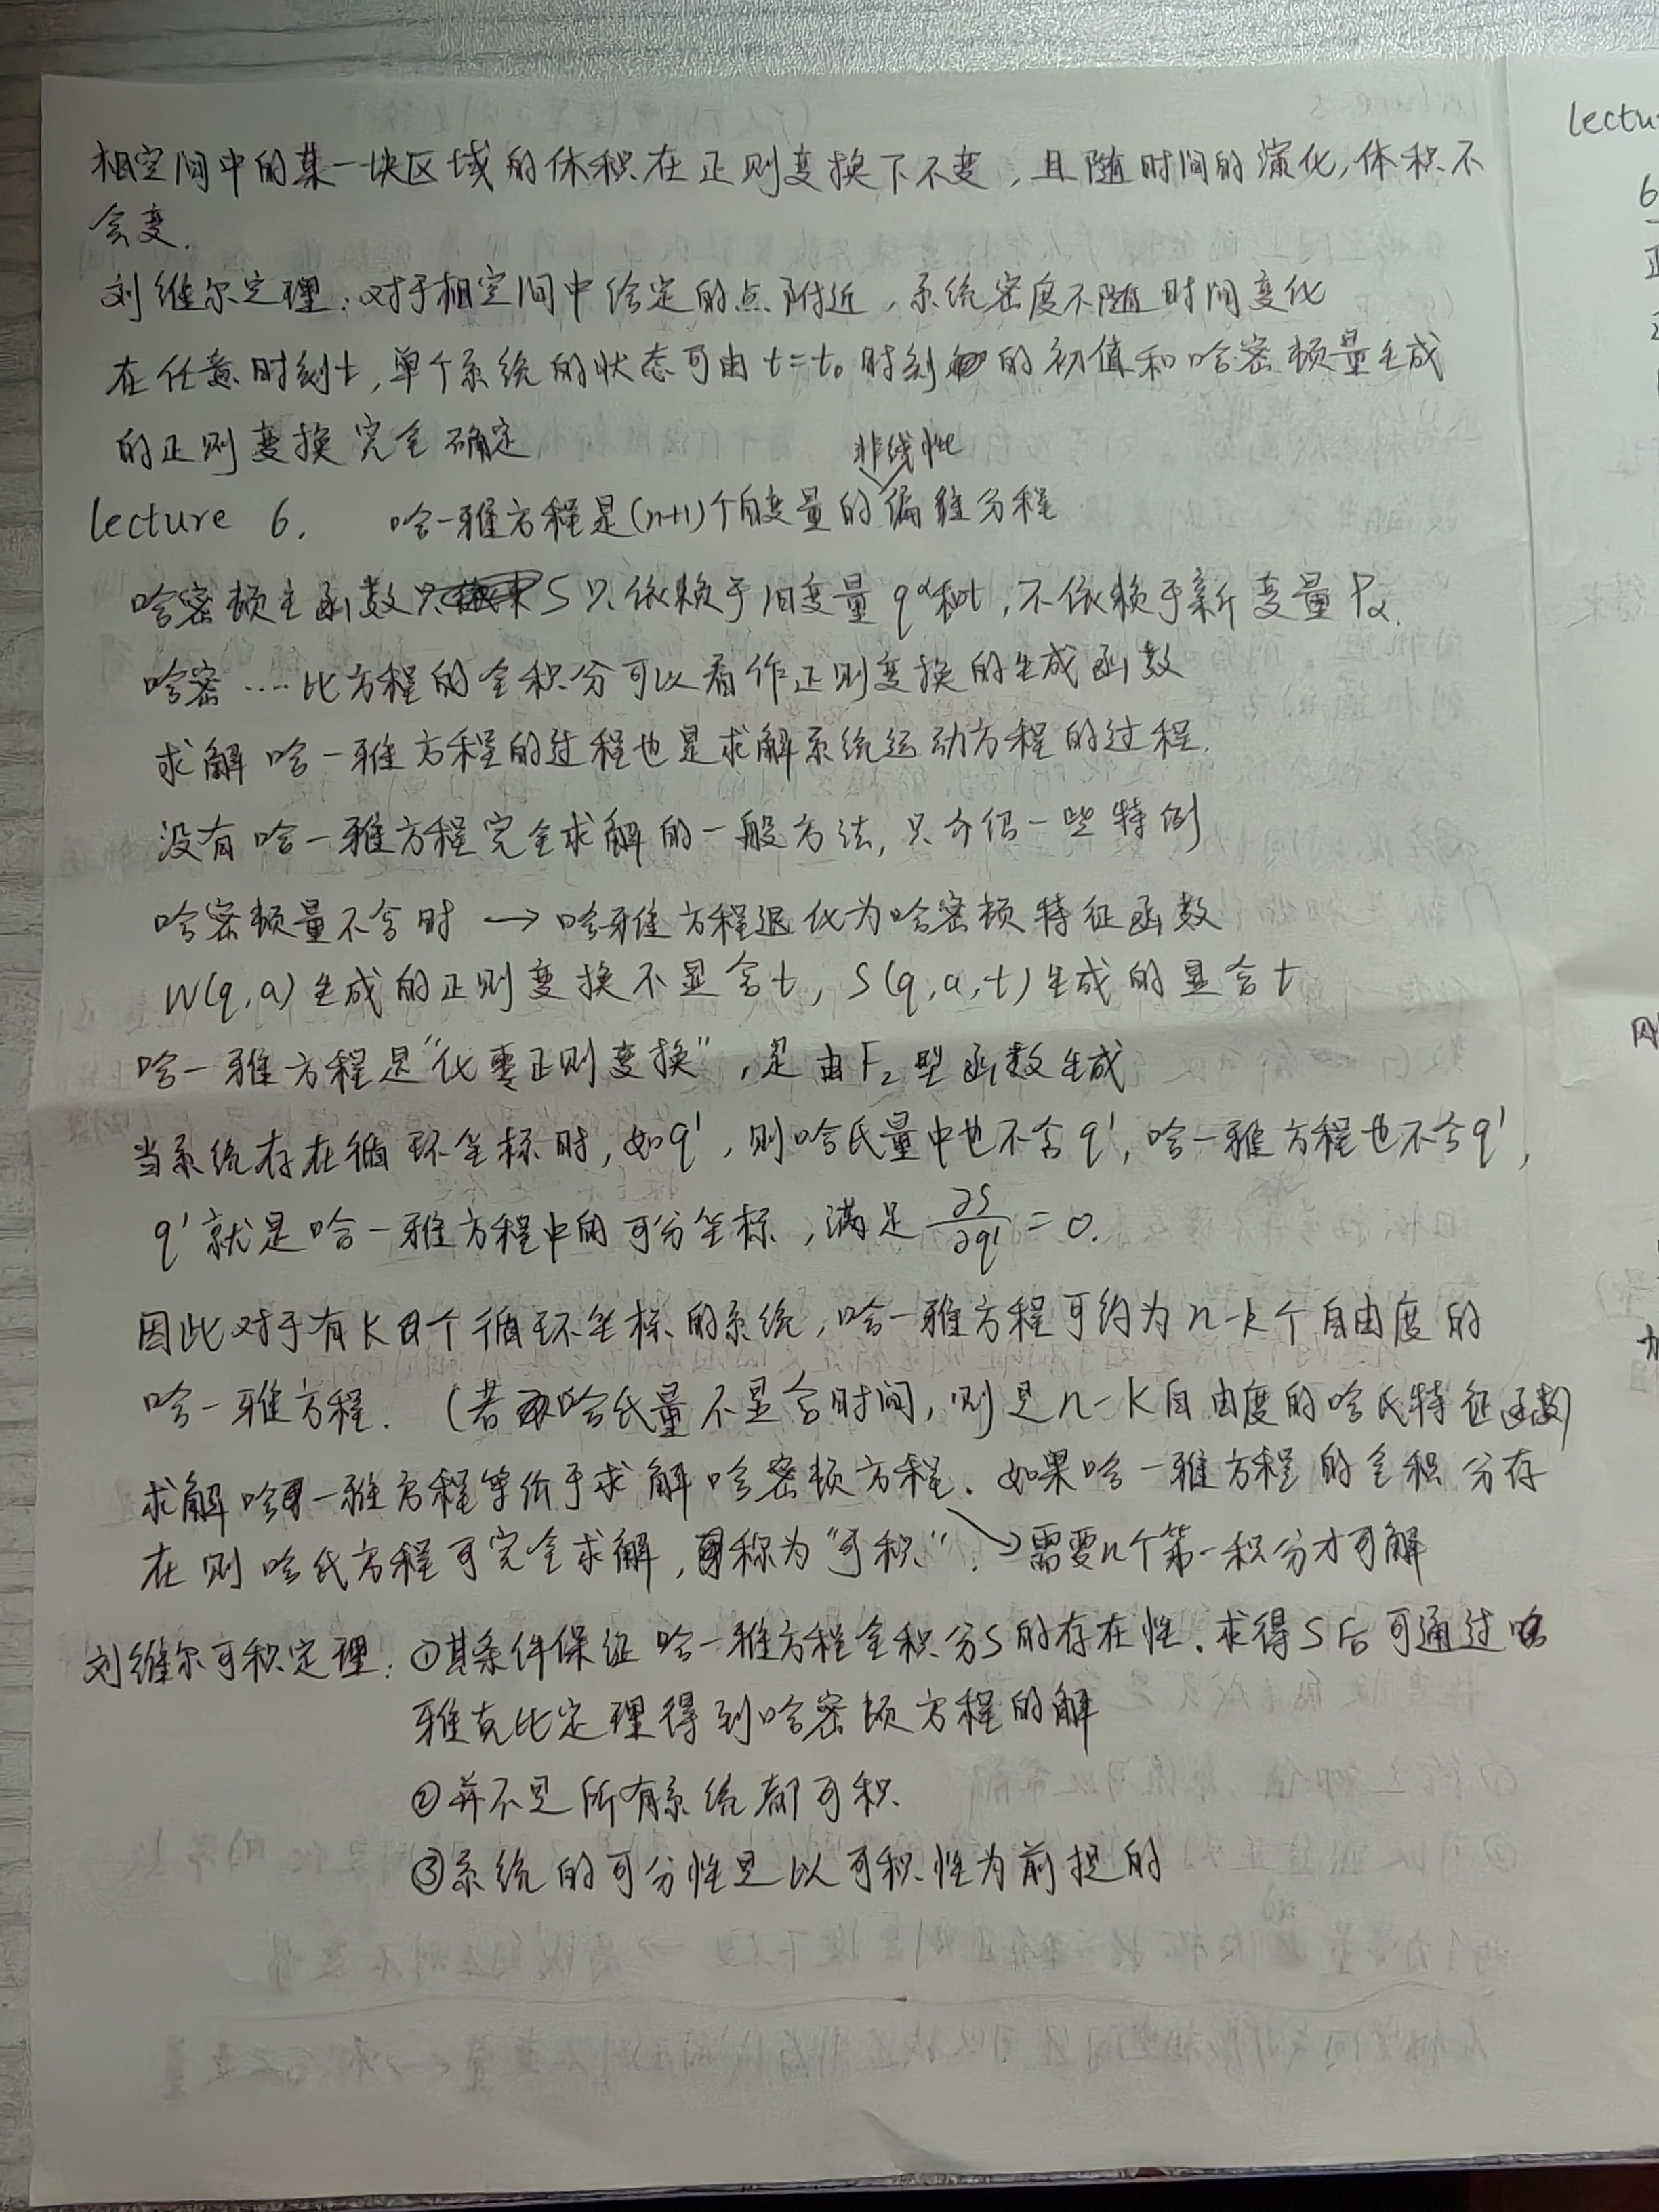 相空间中的某一块区域的体积在正则变换下不变，且随时间的演化，体积不
会变.
刘维尔定理：对于相空间中给定的点附近，系统密度不随时间变化
在任意时刻t，单个系统的状态可由t=t₀时刻的初值和哈密顿量生成
的正则变换完全确定
非线性
lecture 6. 哈-雅方程是(n+1)个自变量的偏微分程
哈密顿主函数S只依赖于旧变量q^α和t，不依赖于新变量P_α.
哈密....比方程的全积分可以看作正则变换的生成函数
求解哈-雅方程的过程也是求解系统运动方程的过程.
没有哈-雅方程完全求解的一般方法，只介绍一些特例
哈密顿量不含时 → 哈雅方程退化为哈密顿特征函数
W(q,a)生成的正则变换不显含t，S(q,a,t)生成的显含t
哈-雅方程是“化零正则变换”，是由F₂型函数生成
当系统存在循环坐标时，如q'，则哈氏量中也不含q'，哈-雅方程也不含q'，
q'就是哈-雅方程中的可分坐标，满足 ∂S/∂q' = 0.
因此对于有k个循环坐标的系统，哈-雅方程可约为n-k个自由度的
哈-雅方程. (若哈氏量不显含时间，则是n-k自由度的哈氏特征函数)
求解哈-雅方程等价于求解哈密顿方程. 如果哈-雅方程的全积分存
在则哈氏方程可完全求解，称为“可积”. → 需要n个第一积分才可解
刘维尔可积定理：①其条件保证哈-雅方程全积分S的存在性. 求得S后可通过哈
雅克比定理得到哈密顿方程的解
②并不是所有系统都可积
③系统的可分性是以可积性为前提的
lectu
6